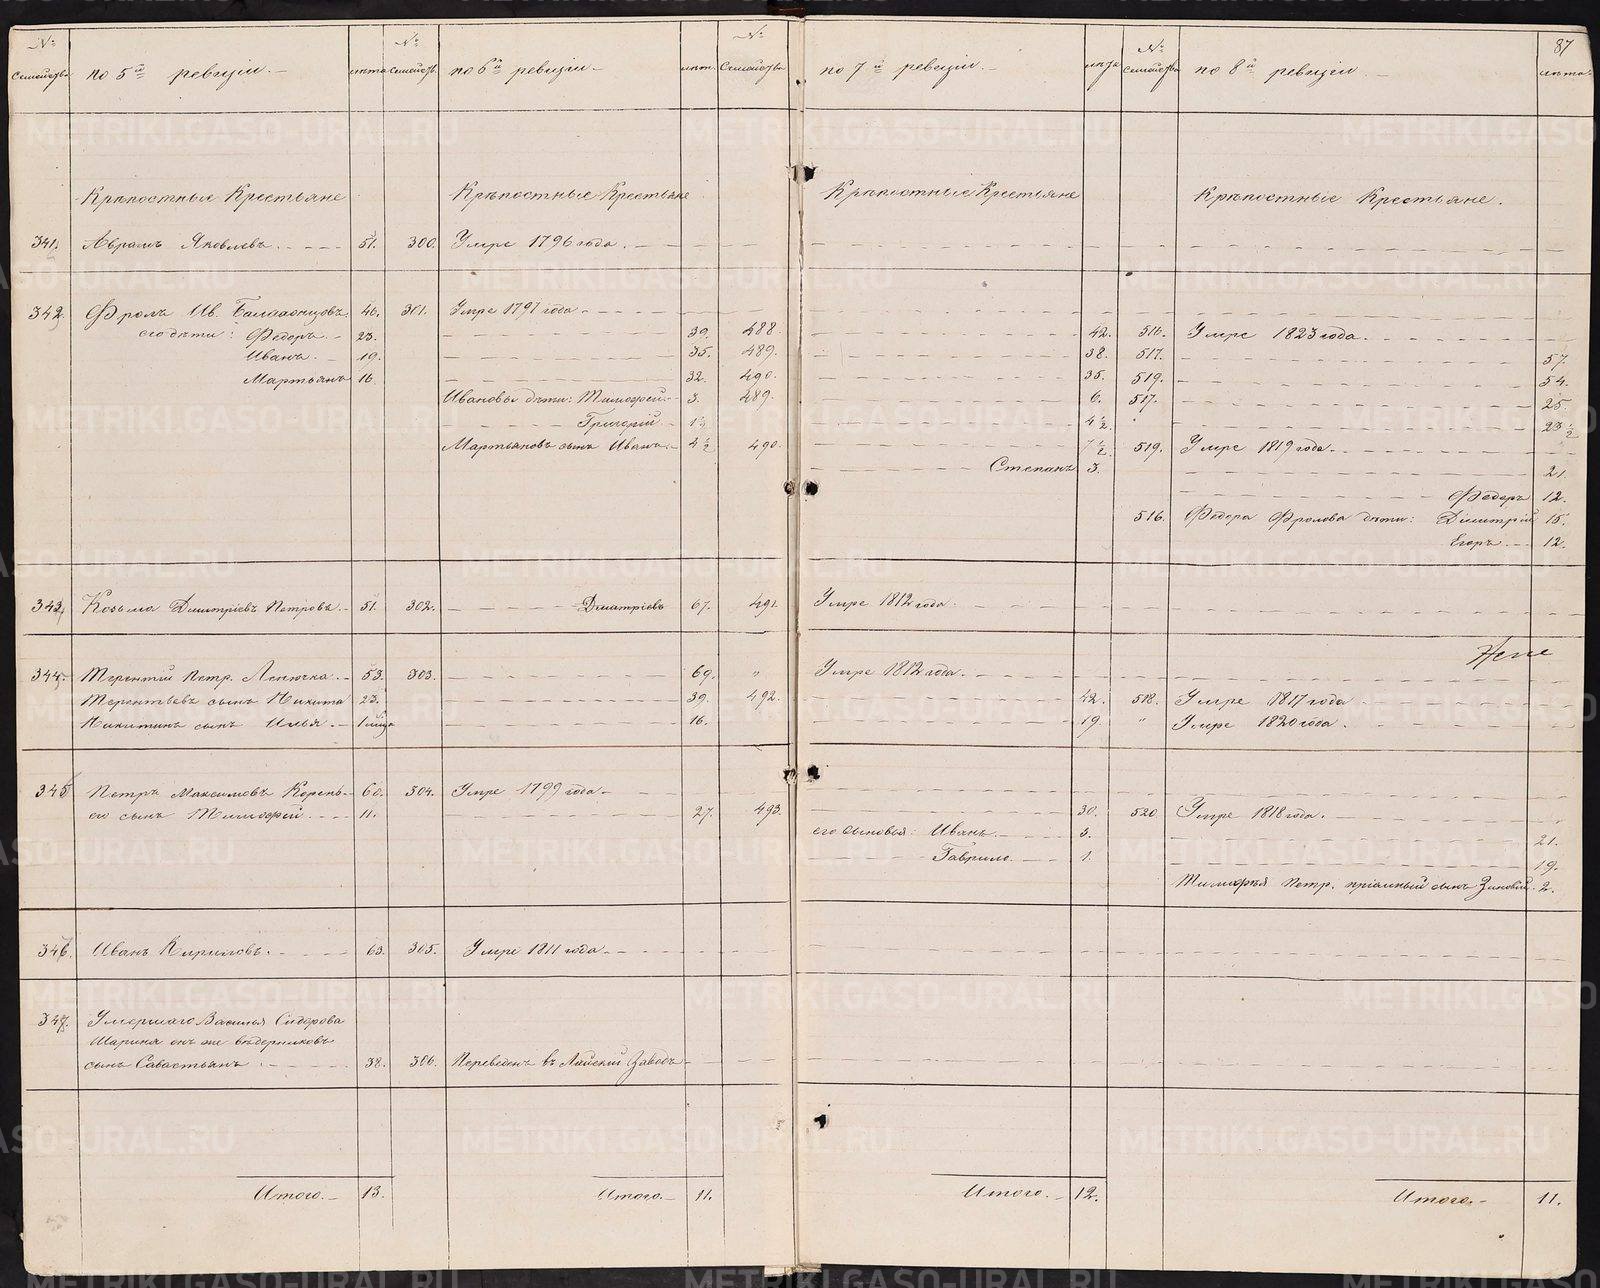 87
№ Семейства по 5й ревизіи. лѣта № Семейств. по 6й ревизіи лѣт. № Семейства по 7й ревизіи. лѣта № Семейства по 8й ревизіи лѣта
Крѣпостные Крестьяне Крѣпостные Крестьяне Крѣпостные Крестьяне Крѣпостные Крестьяне.
341. Аврамъ Яковлевъ. 51. 300. Умре 1796 года.
342. Фролъ Ив. 46. 301. Умре 1797 года
его дѣти: Федоръ. 23. 39. 488. 42. 516. Умре 1823 года.
Иванъ. 19. 35. 489. 38. 517. 57.
Мартьянъ 16. 32. 490. 35. 519. 54.
Ивановы дѣти: Тимофей 3. 489. 6. 517. 25.
Григорій 1½ 4½ 23½
Мартьяновъ сынъ Иванъ. 4½ 490. 7½ 519. Умре 1819 года.
Степанъ 3. 21.
Федоръ 12.
516. Федора Фролова дѣти: Димитрій 15.
Егоръ. 12.
343. Козьма Дмитріевъ Петровъ. 51. 302. Дмитріевъ 67. 491. Умре 1812 года.
344. Терентій Петр. 53. 303. 69. " Умре 1812 года.
Терентьевъ сынъ Никита 23. 39. 492. 42. 518. Умре 1817 года
Никитинъ сынъ Илья. 16. 19. " Умре 1820 года.
345 Петръ Максимовъ Корень 60. 304. Умре 1799 года.
его сынъ Тимофей 11. 27. 493. 30. 520. Умре 1818 года.
его сыновья: Иванъ. 3. 21.
Гаврило. 1. 19.
Тимофея Петр. пріемный сынъ Зиновій. 2.
346. Иванъ Кириловъ. 63. 305. Умре 1811 года.
347. Умершаго Василья Сидорова
Шарина онъ же Ведерниковъ
сынъ Савастьянъ 38. 306. Переведенъ въ Лайскій Заводъ
Итого. 13. Итого. 11. Итого. 12. Итого. 11.
METRIKI.GASO-URAL.RU